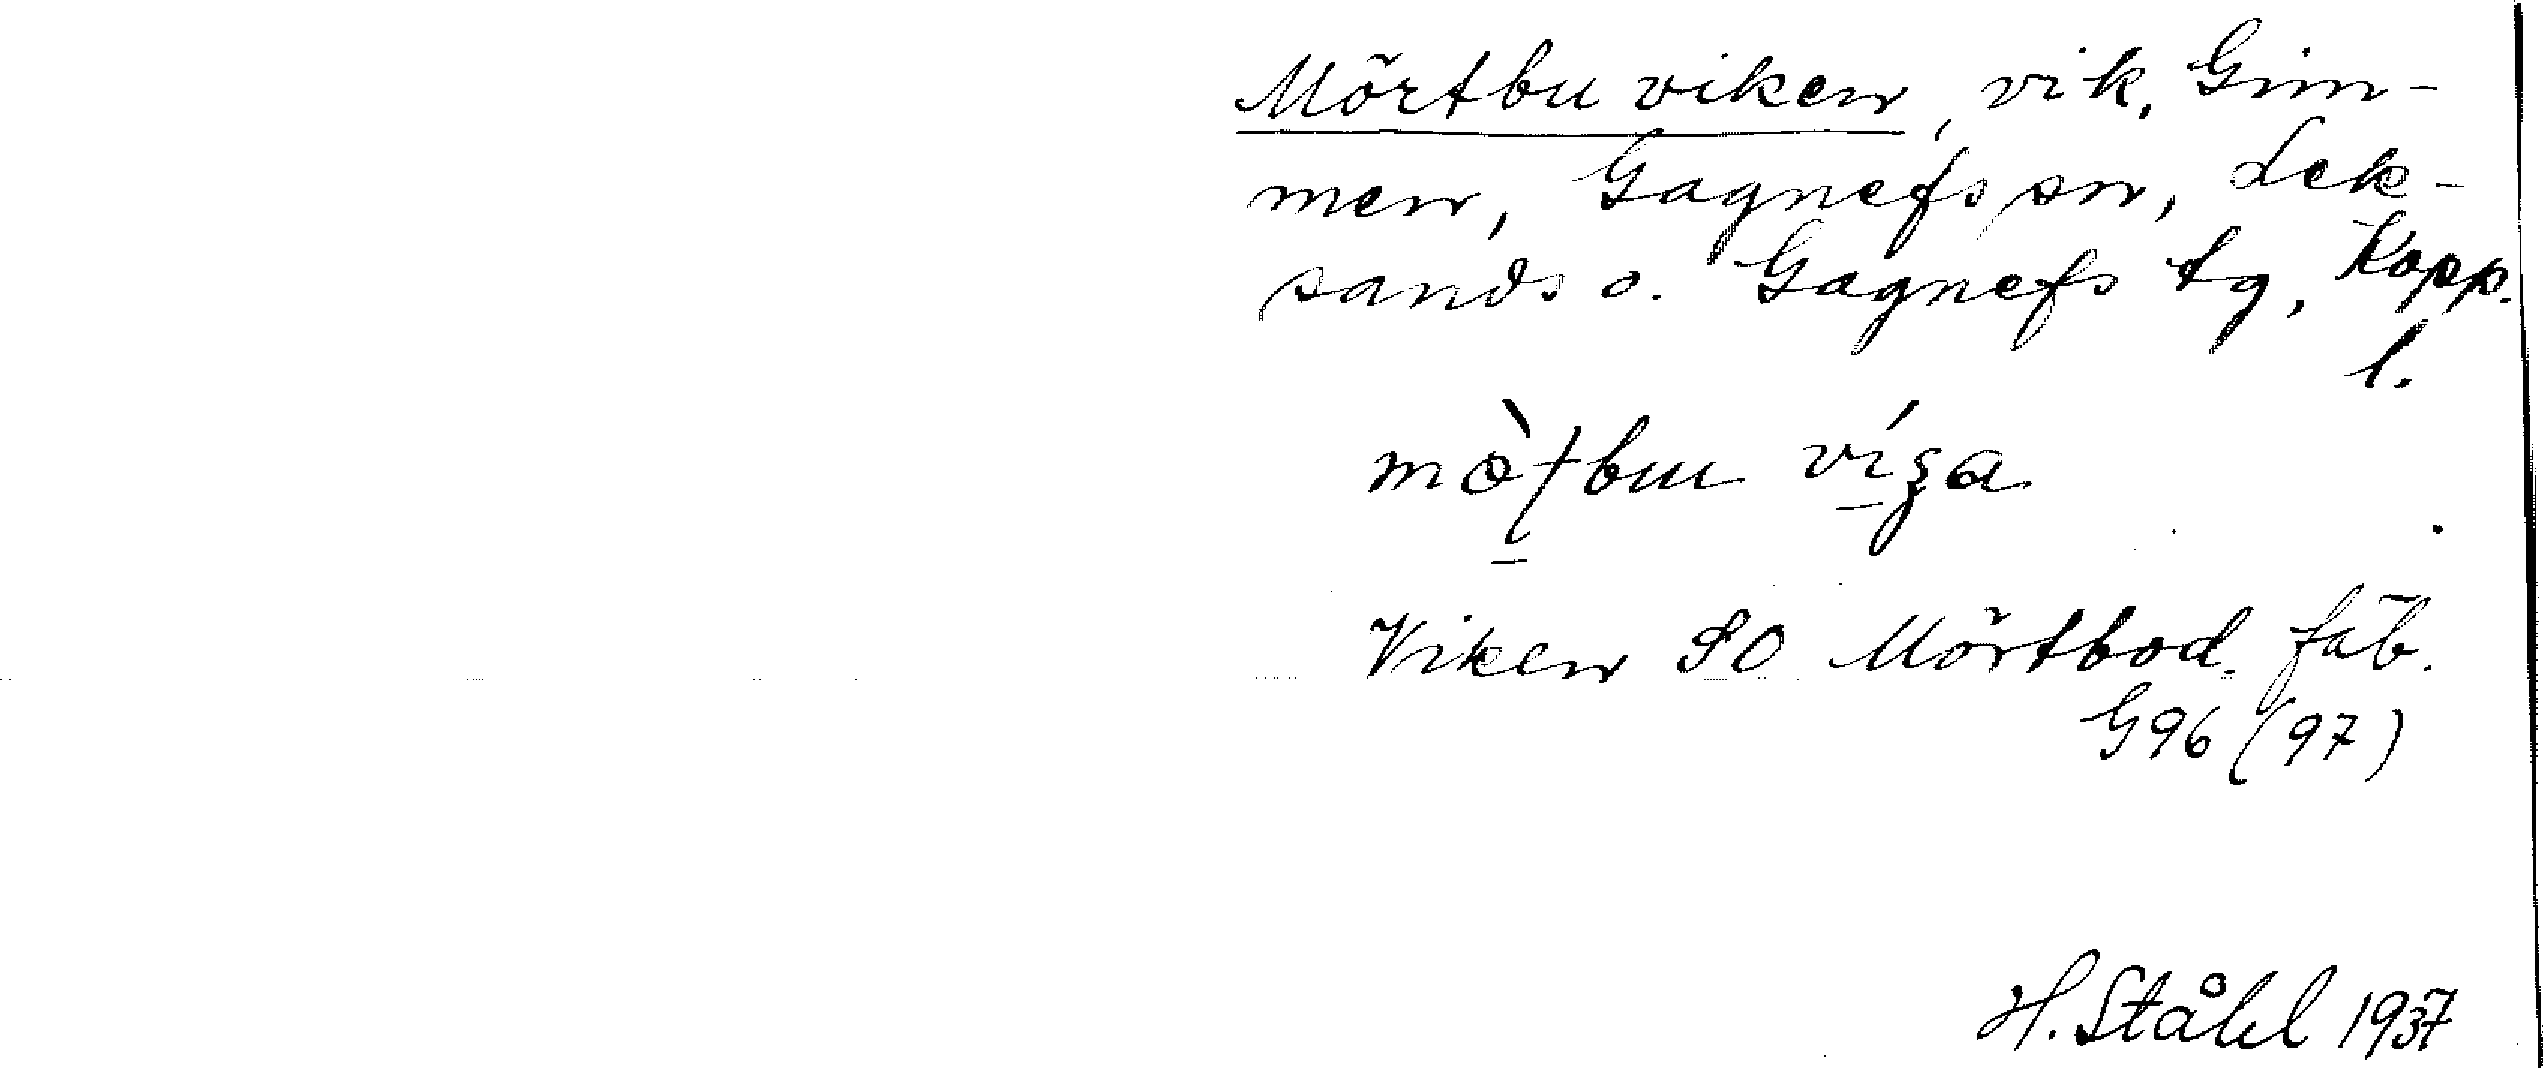 Mörtbuviken, vik, Gim-
men, Gagnefs sn, Lek-
sands o. Gagnefs tg, Kopp.
l.
Viken SO Mörtbod. fäb.
G96 (97)
H. Ståhl 1937